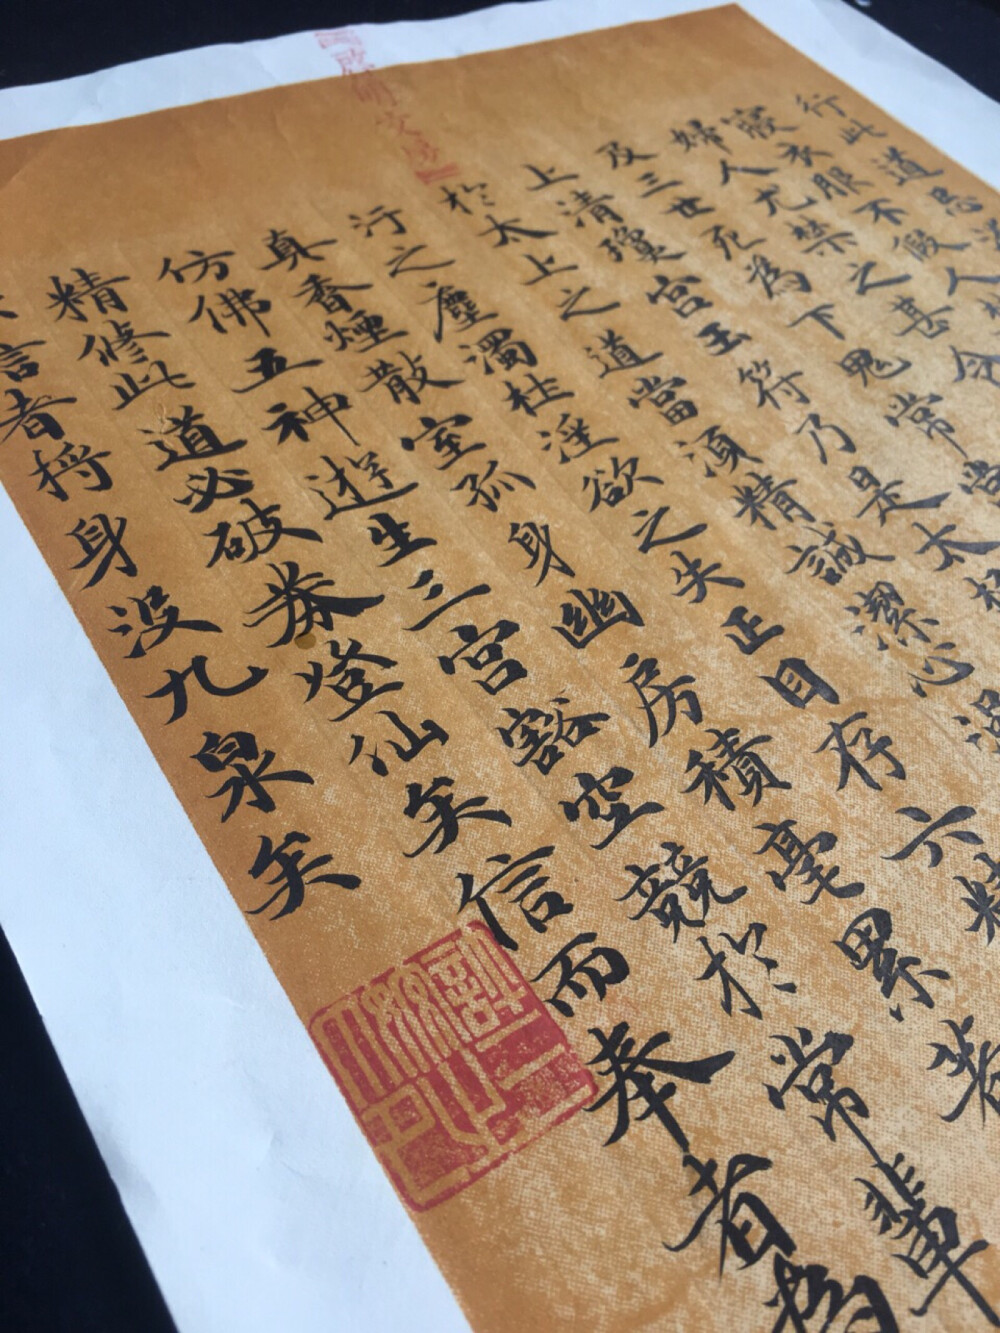 行此道忌淹
寢衣服不假人
婦人尤禁之甚令
及三世死為下鬼常當
上清瓊宮玉符乃是太極
於太上之道當須精誠潔心
汙之塵濁杜淫欲之失正目存六精
真香煙散室孤身幽房積毫累著
仿佛五神遊生三宮豁空競於常輩
精修此道必破券登仙矣信而奉者為
者將身没九泉矣